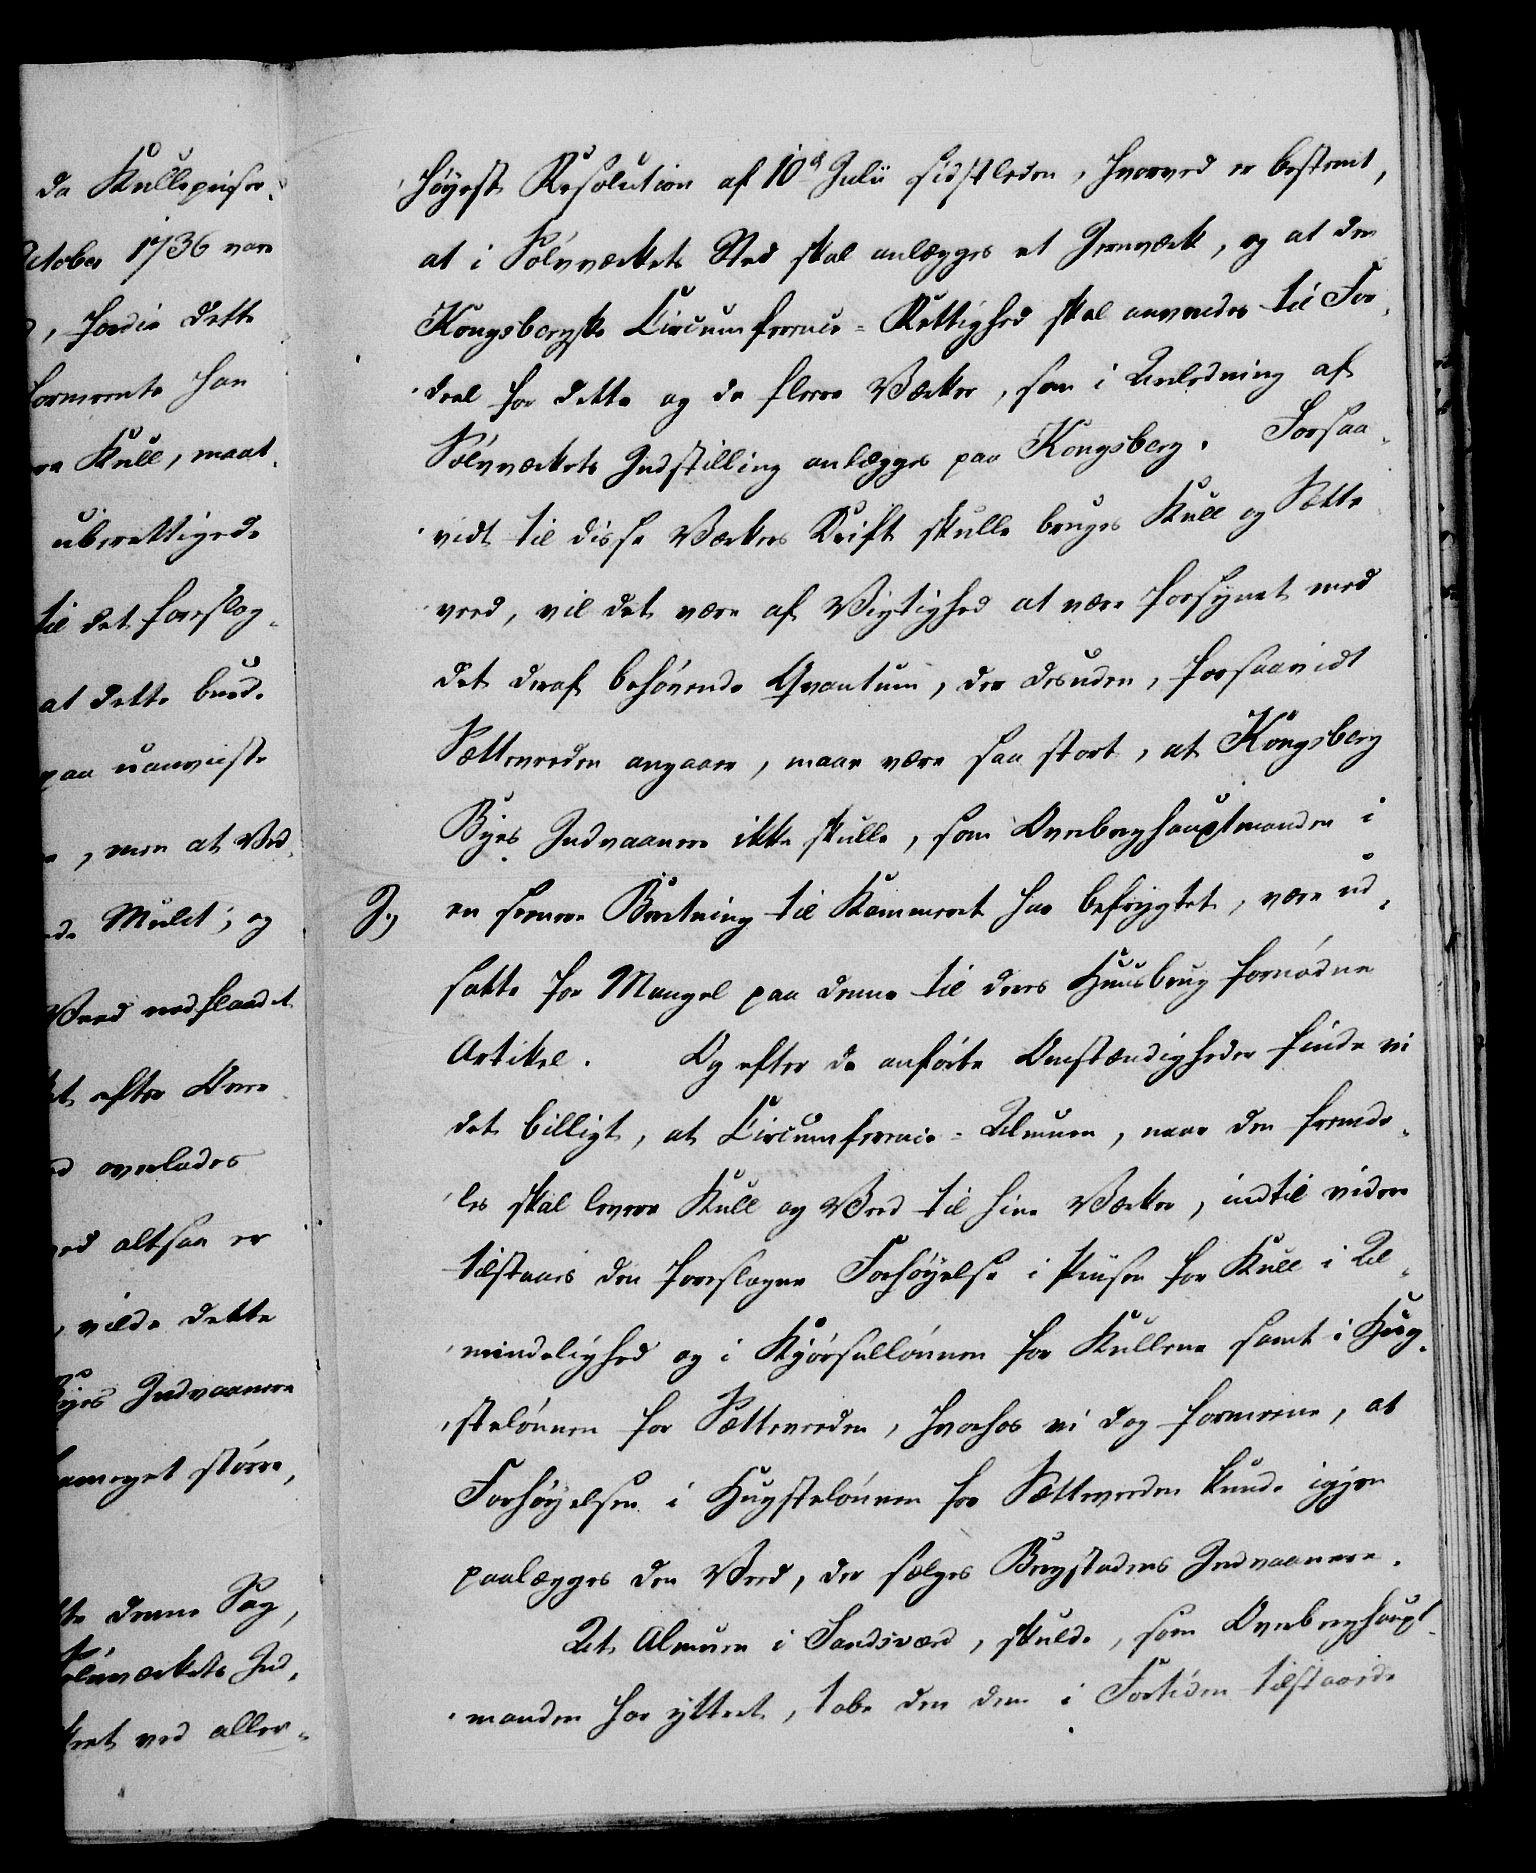 da Kullepriser
October 1736 var
, fordie dette
formeente han
re Kull, maat
uberettigede
til det foreslag
at dette burde
paa uanviiste
, men at Ved
de Mulct; og
Veed nedflaadet
et efter Over
d overlades
ved altsaa er
, vilde dette
Byes Indvaanere
saameget større,
te denne Sag,
Sølvværkets Ind
kret ved aller-
høyeste Resolution af 10de Julii sidstleden, hvorved er bestemt,
at i Sølvværkets Sted skal anlægges et Jernværk, og at den
Kongsbergske Circumference-Rettighed skal anvendes til For
deel for dette og de flere Værker, som i Anledning af
Sølvværkets Indstilling anlægges paa Kongsberg. Forsaa
vidt til disse Værkers Drift skulle bruges Kull og Sætte
veed, vil det være af Vigtighed at være forsynet med
det deraf behøvende Qvantum, der desuden, forsaavidt
Sætteveden angaaer, maae være saa stort, at Kongsberg
Byes Indvaanere ikke skulle, som Overberghauptmanden i
J.) en senere Beretning til Kammeret har befrygtet, være ud
satte for Mangel paa denne til deres Huusbrug fornødne
Artikel. Og efter de anførte Omstændigheder finde vi
det billigt, at Circumference-Almuen, naar den fremde
les skal levere Kull og Veed til hine Værker, indtil videre
tilstaaes den foreslagne Forhøyelse i Priisen for Kull i Al
mindelighed og i Kjørsellønnen for Kullene samt i Hug
stelønnen for Sætteveden, hvorhos vi dog formeene, at
Forhøyelsen i Hugstelønnen for Sætteveden kunde igjen
paalægges den Veed, der sælges Bergstadens Indvaanere.
At Almuen i Sandsværd, skulde, som Overberghaupt
manden har yttret, tabe den dem i Fortiden tilstaaede